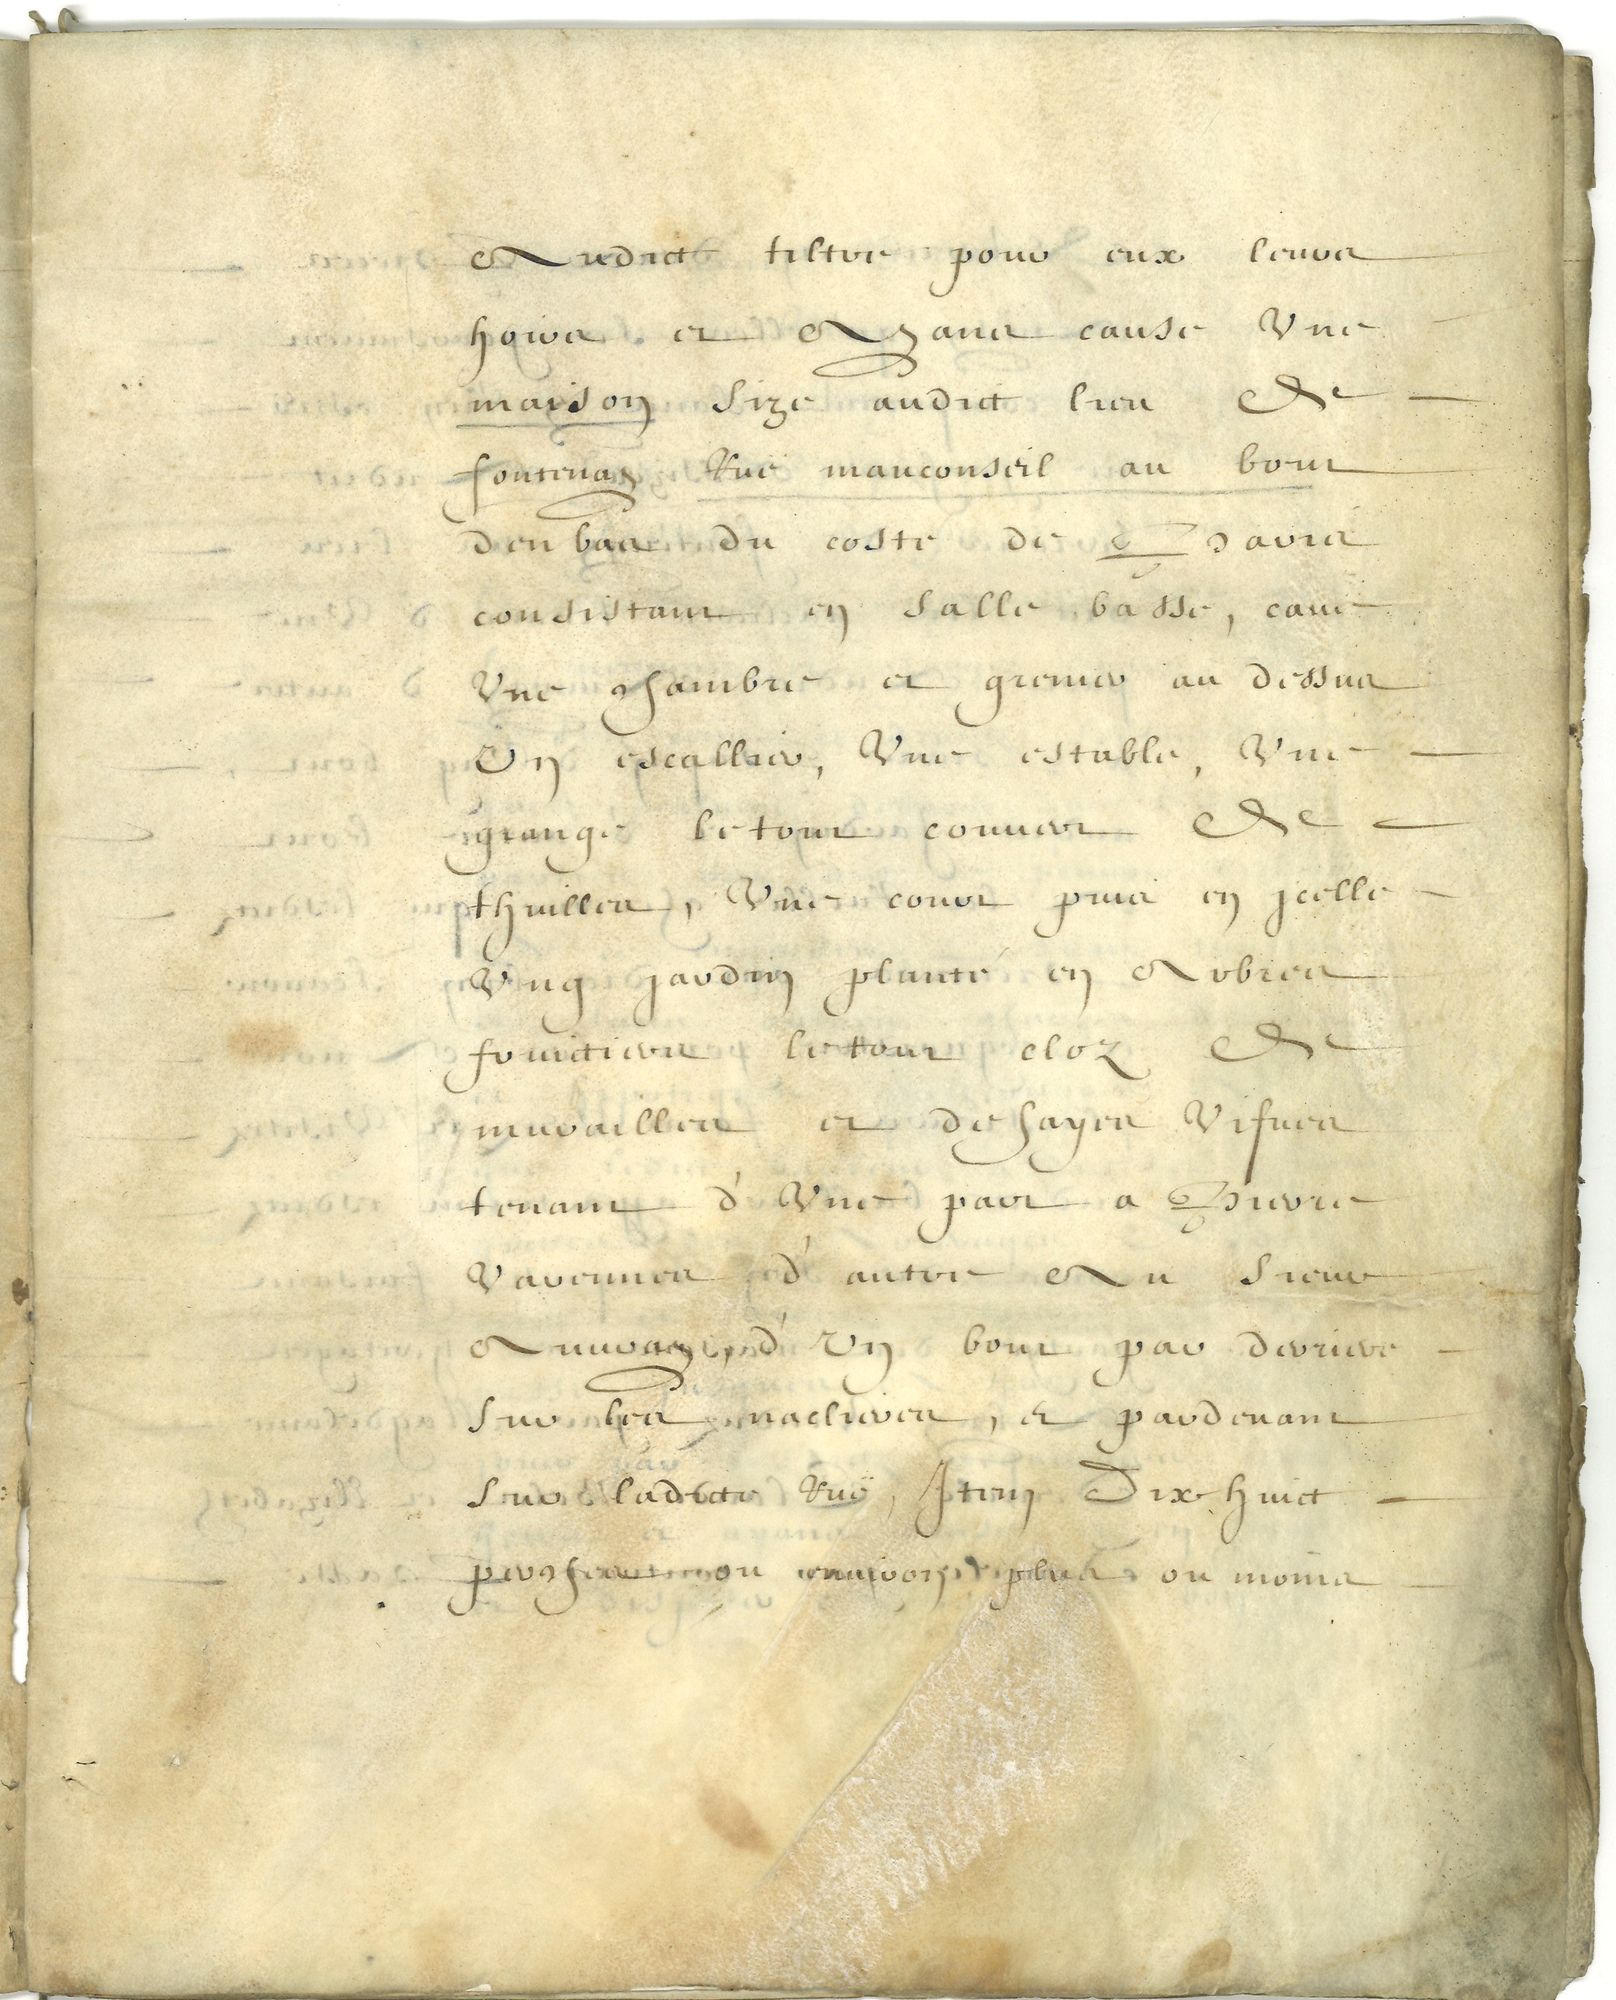 Audict tiltre pour eux leurs
hoirs et Ayans cause Vne
maison size audict lieu De
fontenay Rue mauconseil au bout
den bas du costé de Paris
consistant en salle basse, caue
Vne chambre et grenier au dessus
Vn escallier, Vne estable, Vne
grange le tout couuert De
thuilles, Vne court puis en jcelle
Vng jardin planté en Arbres
fruictiers le tout cloz De
murailles et de hayes Vifues
tenant d'Vne part a Pierre
Varennes d'autre Au sieur
Auuray, d'Vn bout par derriere
sur les maclieres, et pardeuant
sur ladicte Rue, Item Dix huict
perches ou enuiron plus ou moins